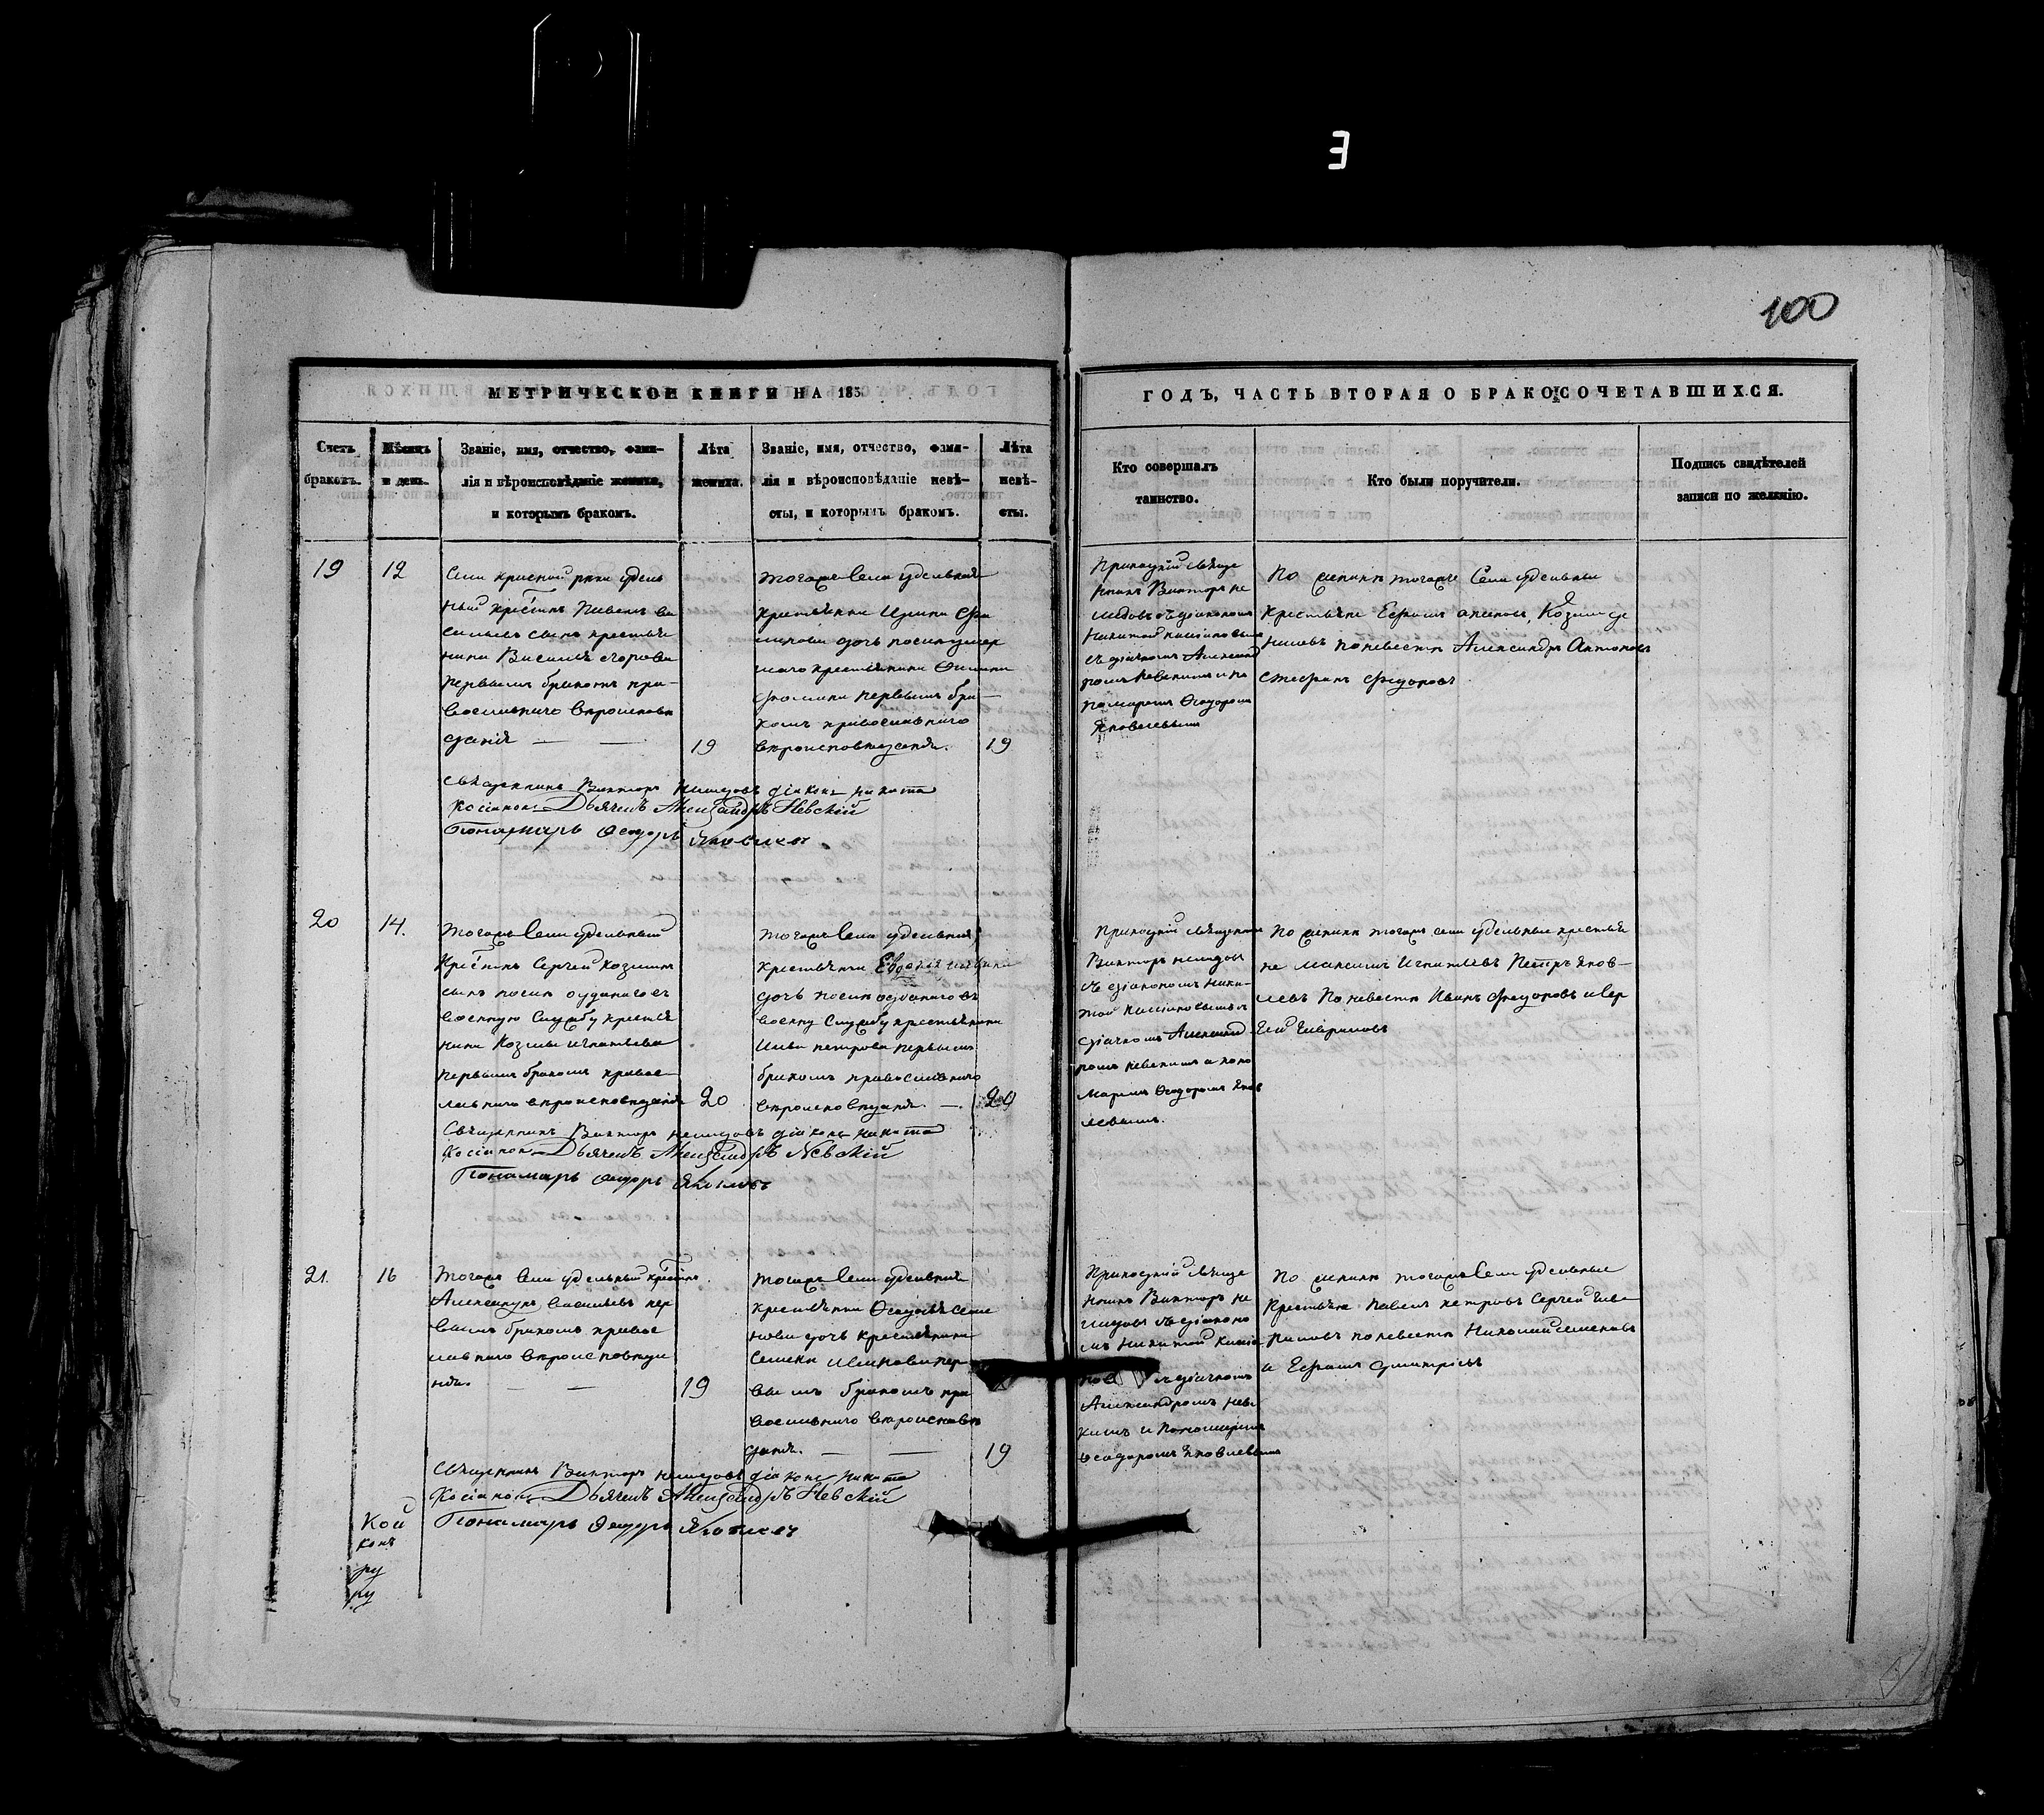 100
МЕТРИЧЕСКОЙ КНИГИ НА 185
ГОДЪ, ЧАСТЬ ВТОРАЯ О БРАКОСОЧЕТАВШИХСЯ.
Счетъ
браковъ.
Мѣсяцъ
и день.
Званіе, имя, отчество, фами-
лія и вѣроисповѣданіе жениха,
и которымъ бракомъ.
Лѣта
жениха.
Званіе, имя, отчество, фами-
лія и вѣроисповѣданіе невѣ-
сты, и которымъ бракомъ.
Лѣта
невѣ-
сты.
Кто совершалъ
таинство.
Кто были поручители.
Подпись свидѣтелей
записи по желанію.
19
12
Села красной реки удель
ный крестьян Павелъ ва
сильевъ сынъ крестья
нина Василья егорова
первымъ бракомъ пра-
вославнаго вероиспове
данія
19
тогожъ Села удельная
крестьянка
дочь
крестьянина
первымъ бра-
комъ православнаго
вероисповеданія.
19
Приходкій свяще
никъ Викторъ не
съ діакономъ
Никитой
съ дьячкомъ Александ
ромъ Невскимъ и по
номаремъ Ѳеодоромъ
Яковлевымъ
По женихе тогоже Села удельныя
крестьяне Ефимъ
по невесте Александръ Антоновъ
Стефанъ Федоровъ
Священникъ Викторъ діаконъ Никита
Дьячекъ Александръ Невскій
Пономарь Ѳеодоръ Яковлевъ
20
14.
тогожъ Села удельный
Крестьян Сергей Козминъ
сынъ после отданаго въ
военную Службу крестья
нина Козмы игнатьева
первымъ бракомъ правос-
лавнаго вероисповеданія
20
тогожъ Села удельная
крестьянка Евдокія
дочь после отданаго въ
военну Службу крестьянина
петрова первымъ
бракомъ православнаго
вероисповеданія
20
Приходкій священникъ
Викторъ
съ діакономъ Ники-
той
дьячкомъ Александ
ромъ невскимъ и поно
маремъ Ѳеодоромъ Яков
левымъ.
По женихе тогожъ села удельные крестья
не Максимъ Игнатьевъ Петръ Яков-
левъ По невесте Иванъ Федоровъ и Сер
гей Гавриловъ
Священникъ Викторъ діаконъ Никита
Дьячекъ Александръ Невскій
Пономарь Ѳеодоръ Яковлевъ
21.
16
тогожъ Села удельный крестьян
Александръ Васильевъ пер
вымъ бракомъ правос
лавнаго вероисповеда
нія.
19
тогожъ Села удельная
крестьянка Ѳеодосья Семе
нова дочь крестьянина
Семена пер
вымъ бракомъ пра
вославнаго вероисповѣ
данія.
19
Приходкій свяще
никъ Викторъ не
съ діаконо
мъ Никитой
съ дьячкомъ
Александромъ Невс
кимъ и Пономаремъ
Ѳеодоромъ Яковлевымъ
По женихе тогожъ Села удельные
Крестьяне Павелъ петровъ Сергей Гав
риловъ по невесте Николай Семеновъ
и Ефимъ Дмитріевъ
Священникъ Викторъ діаконъ Никита
Дьячекъ Александръ Невскій
Пономарь Ѳеодоръ Яковлевъ
Кой
ру
ру